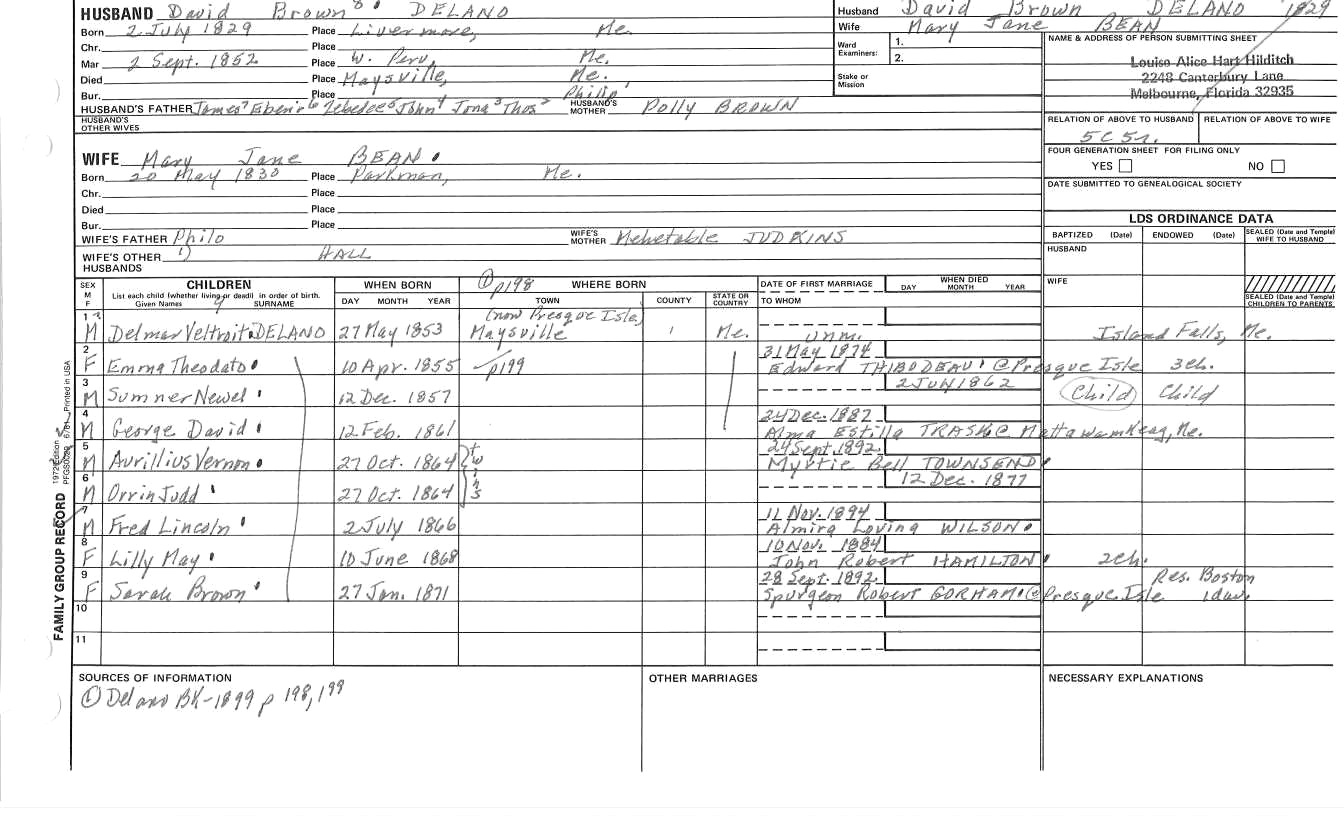 HUSBAND David Brown⁸ DELANO
Born 2 July 1829 Place Livermore, Me.
Chr. Place
Mar 2 Sept. 1852 Place W. Peru, Me.
Died Place Maysville, Me.
Bur. Place Philip¹
HUSBAND'S FATHER James⁷ Eben'r⁶ Zebedee⁵ John⁴ Jona³ Thos² HUSBAND'S MOTHER Polly BROWN
HUSBAND'S OTHER WIVES
WIFE Mary Jane BEAN
Born 20 May 1830 Place Parkman, Me.
Chr. Place
Died Place
Bur. Place
WIFE'S FATHER Philo WIFE'S MOTHER Mehetable JUDKINS
WIFE'S OTHER HUSBANDS 1) HALL
Husband David Brown DELANO 1829
Wife Mary Jane BEAN
Ward Examiners: 1. 2.
Stake or Mission
NAME & ADDRESS OF PERSON SUBMITTING SHEET
Louise Alice Hart Hilditch
2248 Canterbury Lane
Melbourne, Florida 32935
RELATION OF ABOVE TO HUSBAND RELATION OF ABOVE TO WIFE
5C5r.
FOUR GENERATION SHEET FOR FILING ONLY
YES NO
DATE SUBMITTED TO GENEALOGICAL SOCIETY
LDS ORDINANCE DATA
BAPTIZED (Date) ENDOWED (Date) SEALED (Date and Temple) WIFE TO HUSBAND
HUSBAND
WIFE
SEALED (Date and Temple) CHILDREN TO PARENTS
SEX M F CHILDREN WHEN BORN ① p198 WHERE BORN DATE OF FIRST MARRIAGE WHEN DIED
List each child (whether living or dead) in order of birth.
Given Names 9 SURNAME DAY MONTH YEAR TOWN COUNTY STATE OR COUNTRY TO WHOM DAY MONTH YEAR
(now Presque Isle)
1 M Delmar Veltroit DELANO 27 May 1853 Maysville Me. Unm. Island Falls, Me.
31 May 1874
2 F Emma Theodato 10 Apr. 1855 p199 Edward THIBODEAU @ Presque Isle 3ch.
2 Jun 1862
3 M Sumner Newel 12 Dec. 1857 Child Child
24 Dec. 1887
4 M George David 12 Feb. 1861 Alma Estilla TRASK @ Mattawamkeag, Me.
24 Sept. 1892
5 M Aurillius Vernon 27 Oct. 1864 twins Myrtie Bell TOWNSEND
12 Dec. 1877
6 M Orrin Judd 27 Oct. 1864
11 Nov. 1894
7 M Fred Lincoln 2 July 1866 Almira Loving WILSON
10 Nov. 1884
8 F Lilly May 10 June 1868 John Robert HAMILTON 2ch.
28 Sept. 1892 Res. Boston
9 F Sarah Brown 27 Jan. 1871 Spurgeon Robert GORHAM @ Presque Isle 1dau.
10
11
SOURCES OF INFORMATION OTHER MARRIAGES NECESSARY EXPLANATIONS
① Delano BK-1899 p 198, 199
FAMILY GROUP RECORD
Printed in USA